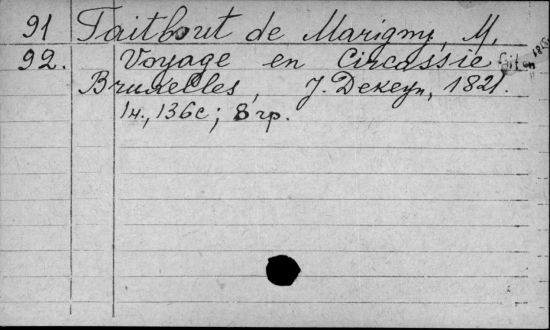 91 Taitbout de Marigny, M.
92. Voyage en Circassie fait en 1818.
Bruxelles, J. Dekeyn, 1821.
1н., 136с; 8 гр.